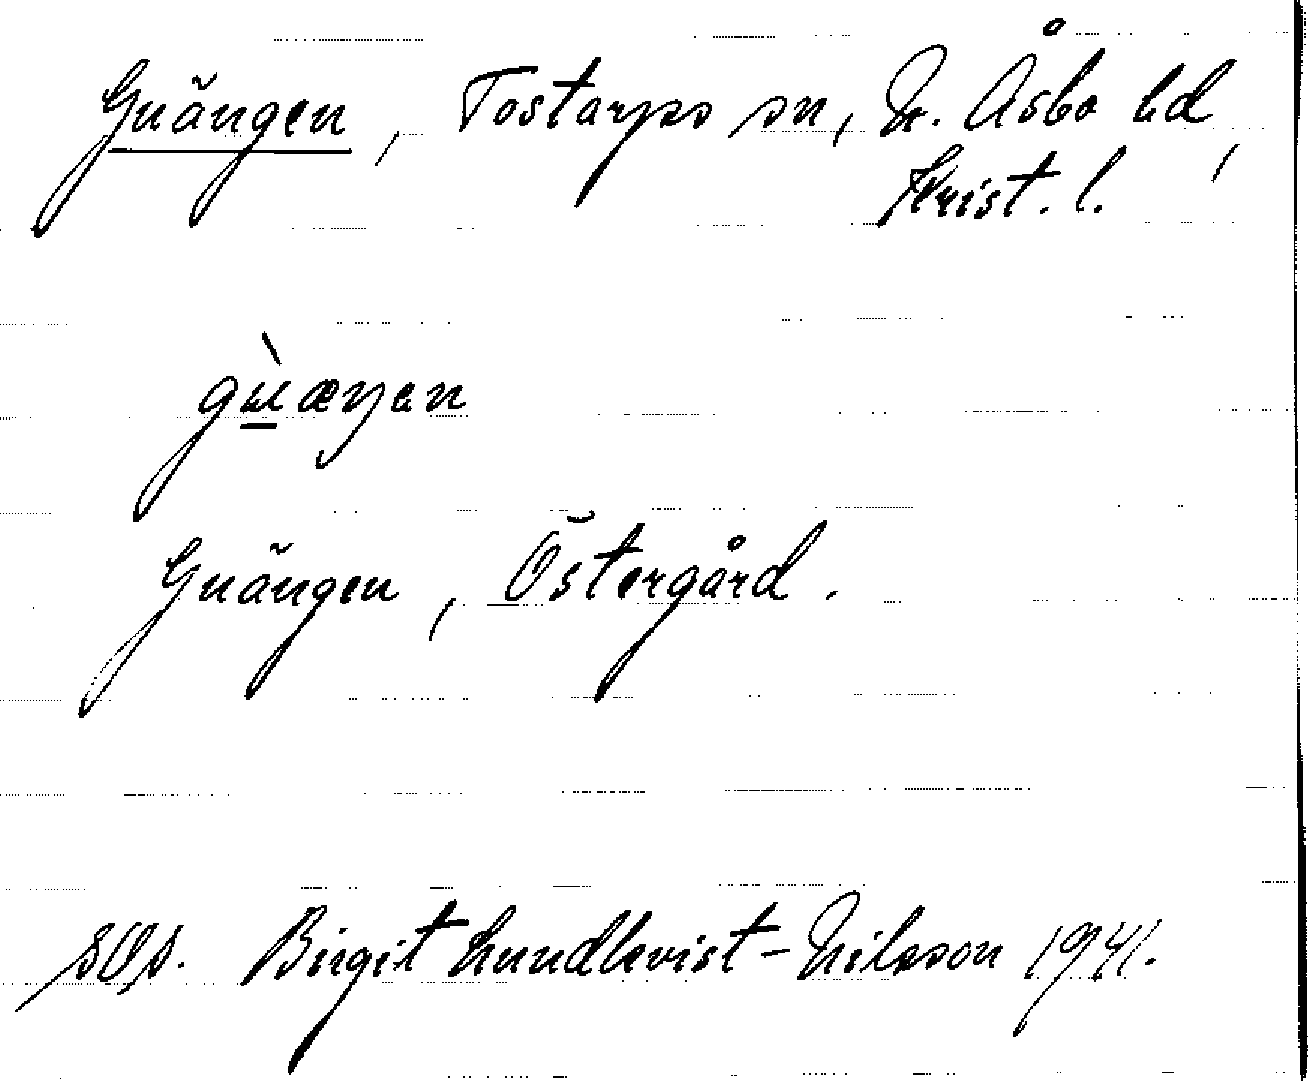 Gnängen, Tostarps sn, N. Åsbo hd,
Krist. l.
Gnängen, Östergård.
Birgit Lundkvist-Nilsson 1941.